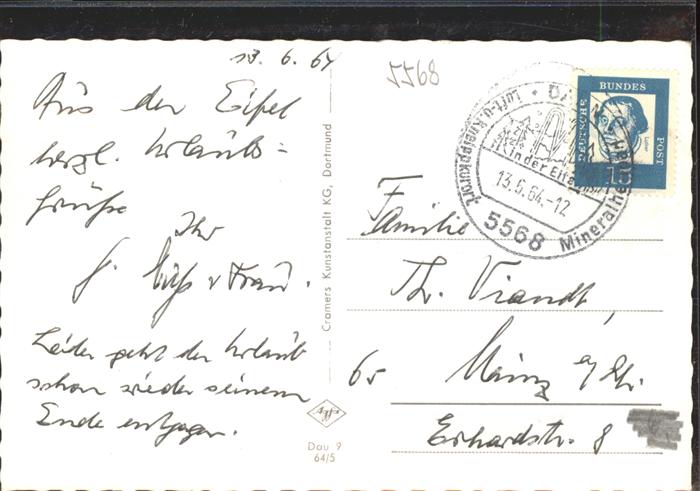 13.6.64
Aus der Eifel
herzl. Urlaubs=
grüße
Ihr
u. Frau.
Leider geht der Urlaub
schon wieder seinem
Ende entgegen.
Cramers Kunstanstalt KG, Dortmund
Agfa
Dau 9
64/5
5568
Luft-u.Kneippkurort
in der Eifel
13.6.64.-12
5568
Mineralheil
DEUTSCHE
BUNDES
POST
Luther
15
Familie
Th. Viandt,
65 Mainz a/Rh.
Erhardstr. 8